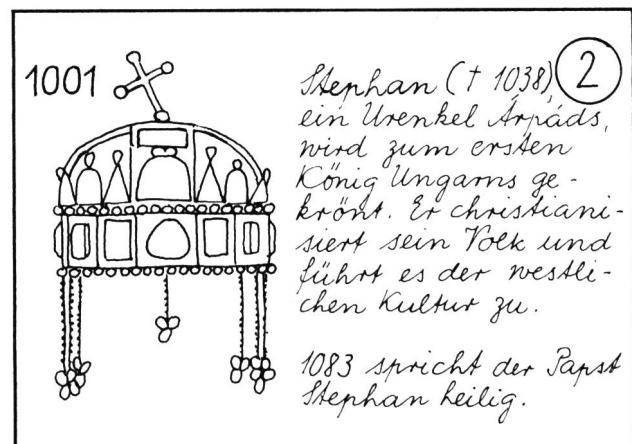 1001
2
Stephan († 1038),
ein Urenkel Árpáds,
wird zum ersten
König Ungarns ge-
krönt. Er christiani-
siert sein Volk und
führt es der westli-
chen Kultur zu.
1083 spricht der Papst
Stephan heilig.